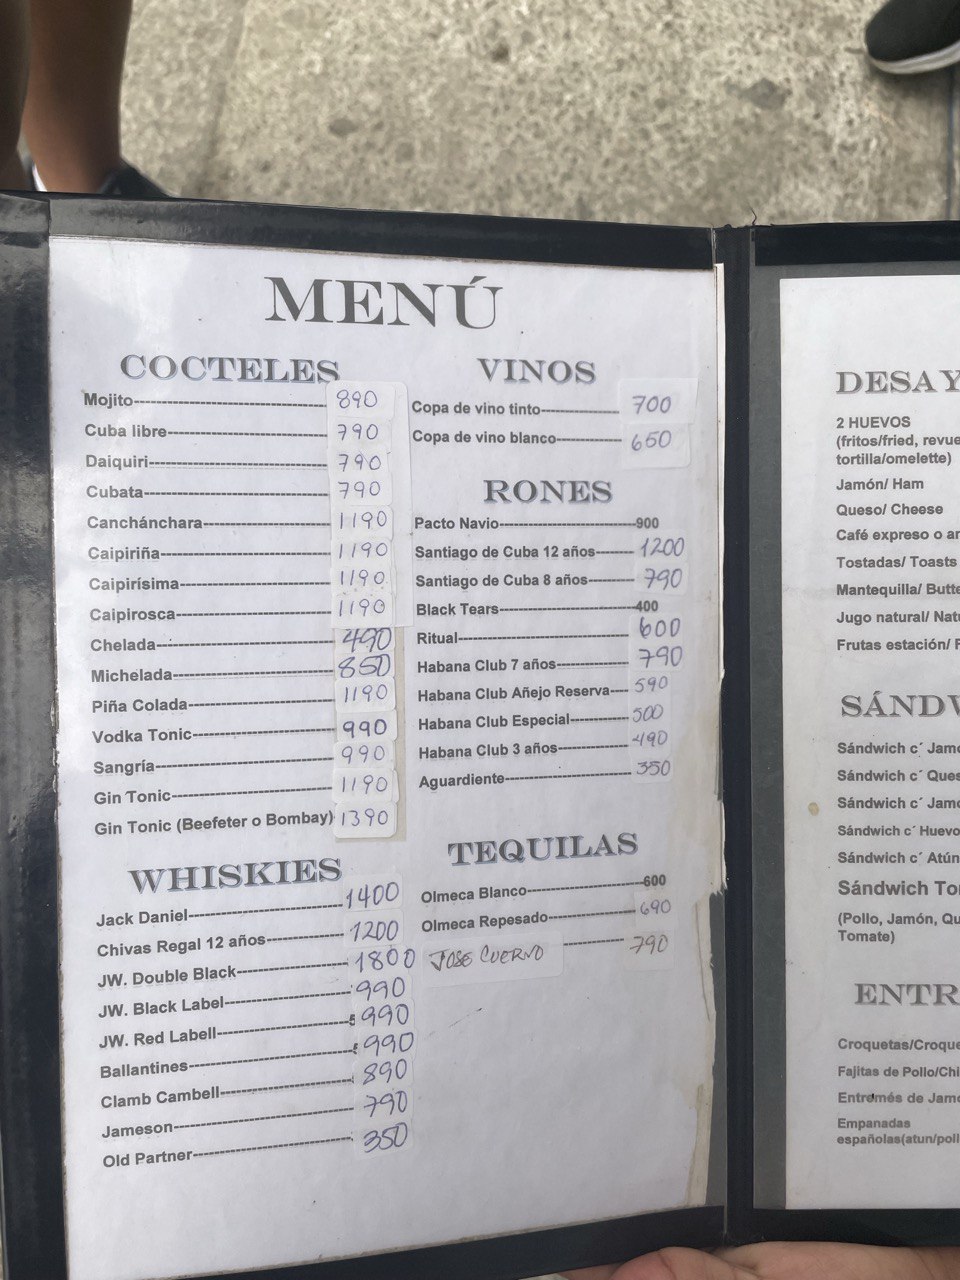 MENÚ
COCTELES
Mojito 890
Cuba libre 790
Daiquiri 790
Cubata 790
Canchánchara 1190
Caipiriña 1190
Caipirísima 1190
Caipirosca 1190
Chelada 490
Michelada 850
Piña Colada 1190
Vodka Tonic 990
Sangría 990
Gin Tonic 1190
Gin Tonic (Beefeter o Bombay) 1390
WHISKIES
Jack Daniel 1400
Chivas Regal 12 años 1200
JW. Double Black 1800
JW. Black Label 990
JW. Red Labell 990
Ballantines 990
Clamb Cambell 890
Jameson 790
Old Partner 350
VINOS
Copa de vino tinto 700
Copa de vino blanco 650
RONES
Pacto Navio 900
Santiago de Cuba 12 años 1200
Santiago de Cuba 8 años 790
Black Tears 400
Ritual 600
Habana Club 7 años 790
Habana Club Añejo Reserva 590
Habana Club Especial 500
Habana Club 3 años 490
Aguardiente 350
TEQUILAS
Olmeca Blanco 600
Olmeca Repesado 690
JOSE CUERVO 790
DESAY
2 HUEVOS
(fritos/fried, revue
tortilla/omelette)
Jamón/ Ham
Queso/ Cheese
Café expreso o ar
Tostadas/ Toasts
Mantequilla/ Butte
Jugo natural/ Natu
Frutas estación/ F
SÁNDW
Sándwich c´ Jamo
Sándwich c´ Ques
Sándwich c´ Jamo
Sándwich c´ Huevo
Sándwich c´ Atún
Sándwich Tor
(Pollo, Jamón, Qu
Tomate)
ENTR
Croquetas/Croque
Fajitas de Pollo/Chi
Entremés de Jamo
Empanadas
españolas(atun/poll